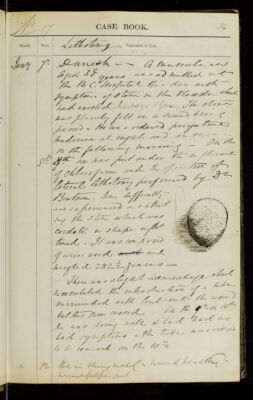 17
CASE BOOK.
Month.
Lithotomy
Explanation of Cases.
7th Danish — A Mussulman
aged 38 years was admitted into
the M.C. Hospital this day with
symptoms of stone in the bladder which
had existed
The stone
was plainly felt on a sound being
passed — He was ordered purgative
medicine at night and an enema
on the following morning — On the
8th he was put under the influence
of chloroform and the operation of
lateral Lithotomy performed by Dr
Some difficulty
was experienced in extract
ing the stone which was
cordate in shape & flat
tened. It was composed
of uric acid and
weighed 282½ grains —
There was slight haemorrhage which
necessitated the introduction of a tube
surrounded with lint into the wound
but this soon ceased. On the
he was doing well & had had no
bad symptoms & the tube was
to be removed on the 10th
12
He is doing well & wound healthy